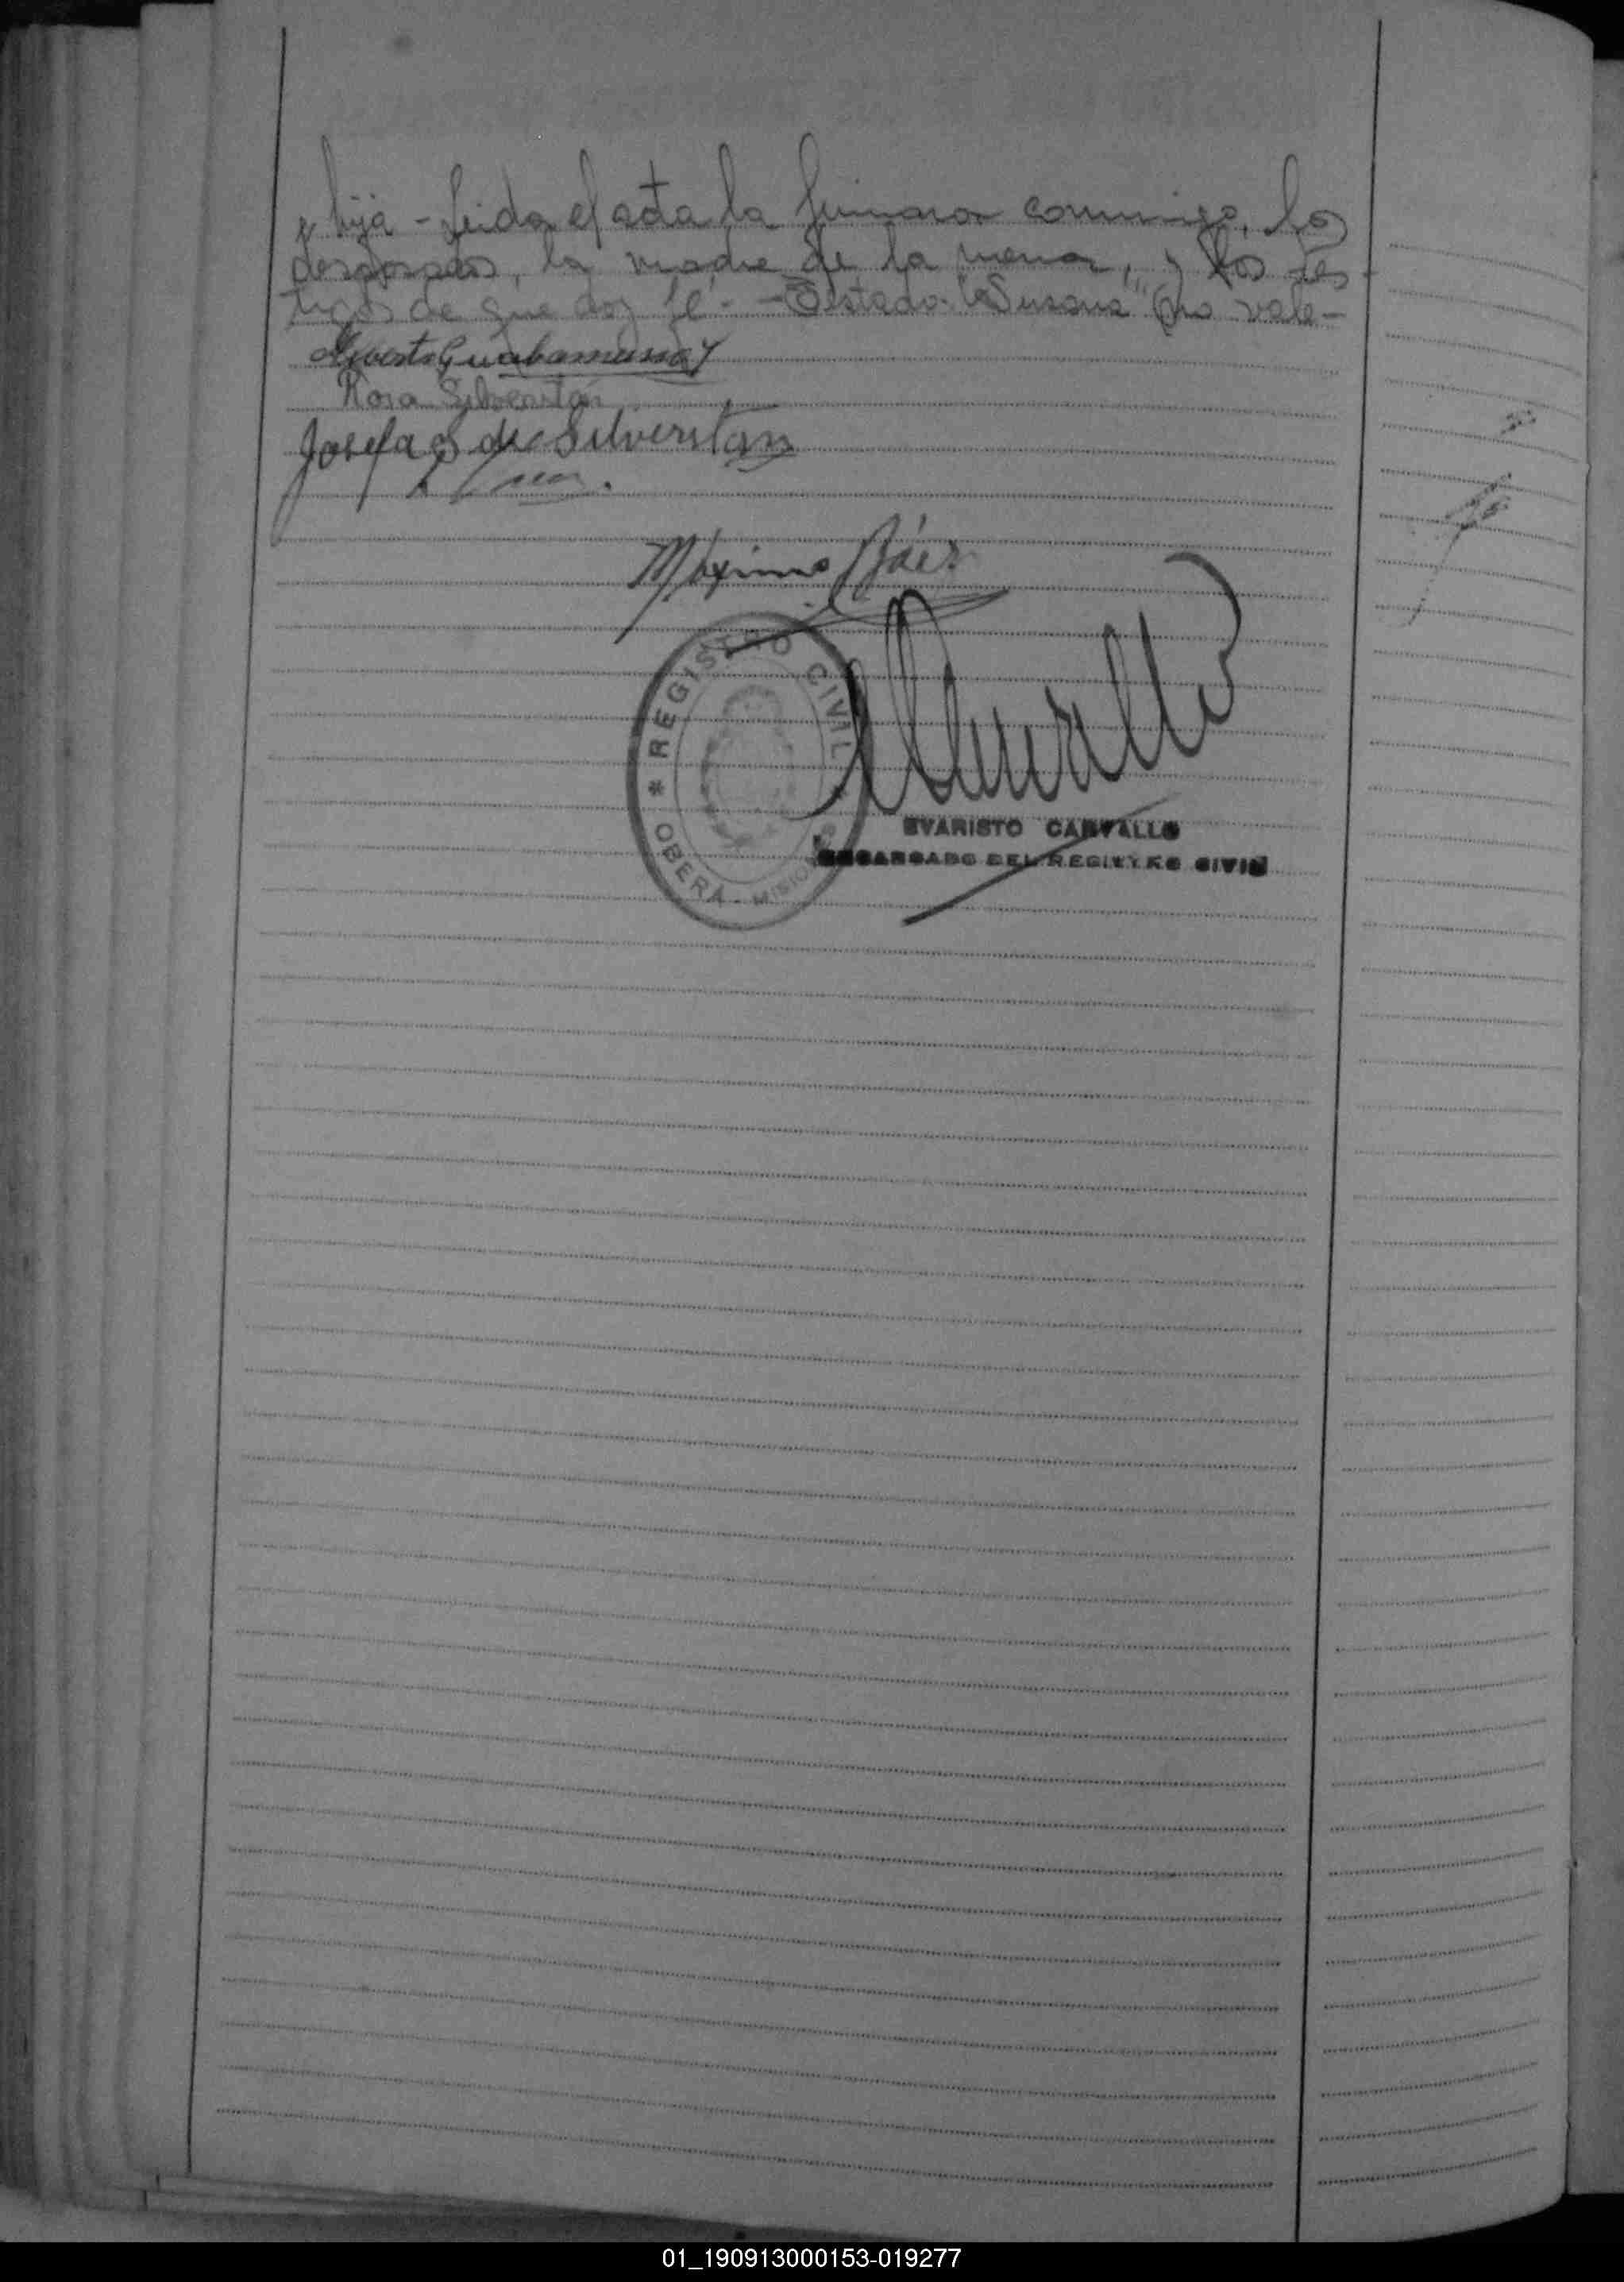 y hija - Leida el acta la firmaron conmigo, los
desposados, la madre de la menor, y los tes-
tigos de que doy fé. - Testado "Susana" no vale -
Alberto Guahamussay
Rosa Silverstan
Josefa S de Silverstan
Máximo Báez
REGISTRO CIVIL
OBERA - MISIONES
EVARISTO CARVALLO
ENCARGADO DEL REGISTRO CIVIL
01_190913000153-019277